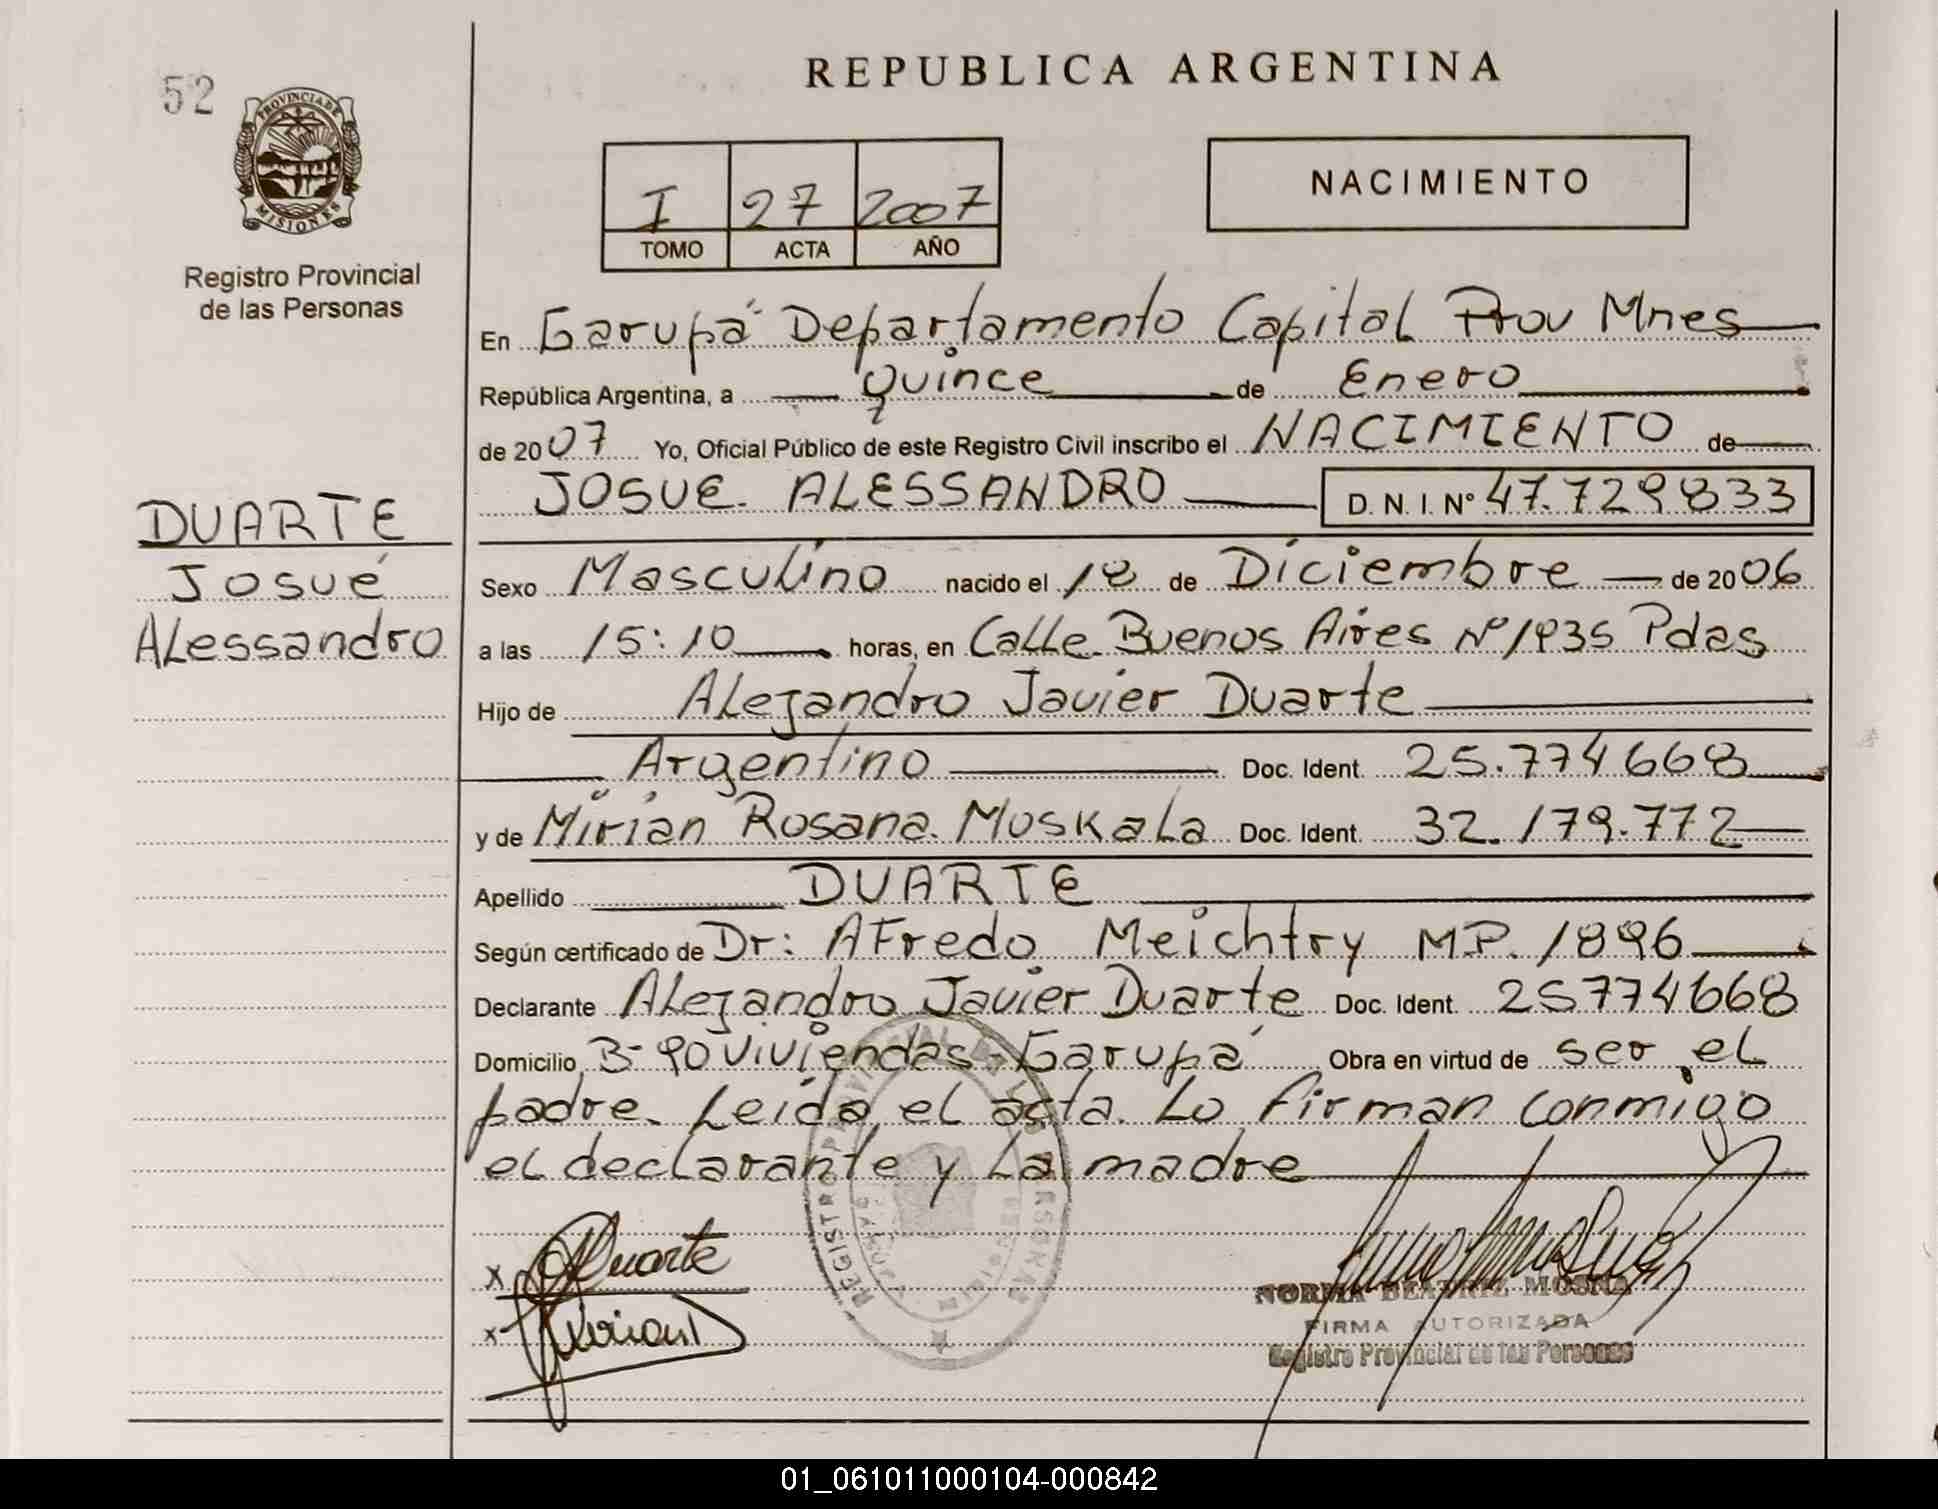 REPUBLICA ARGENTINA
52
PROVINCIA DE
MISIONES
Registro Provincial
de las Personas
I 27 2007
TOMO ACTA AÑO
NACIMIENTO
En Garupá Departamento Capital Prov Mnes
República Argentina, a Quince de Enero
de 2007 Yo, Oficial Público de este Registro Civil inscribo el NACIMIENTO de
JOSUE ALESSANDRO D. N. I. Nº 47.729833
DUARTE
Josué
Alessandro
Sexo Masculino nacido el 18 de Diciembre de 2006
a las 15:10 horas, en Calle Buenos Aires Nº 1935 Pdas
Hijo de Alejandro Javier Duarte
Argentino Doc. Ident. 25.774668
y de Mirian Rosana Moskala Doc. Ident. 32.179.772
Apellido DUARTE
Según certificado de Dr: AFredo Meichtry M.P. 1896
Declarante Alejandro Javier Duarte Doc. Ident. 25774668
Domicilio B- 90 Viviendas - Garupá Obra en virtud de ser el
padre. Leida el acta. Lo firman conmigo
el declarante y la madre
x Duarte
x
NORMA BEATRIZ MOSNA
FIRMA AUTORIZADA
Registro Provincial de las Personas
REGISTRO PROVINCIAL DE LAS PERSONAS
01_061011000104-000842